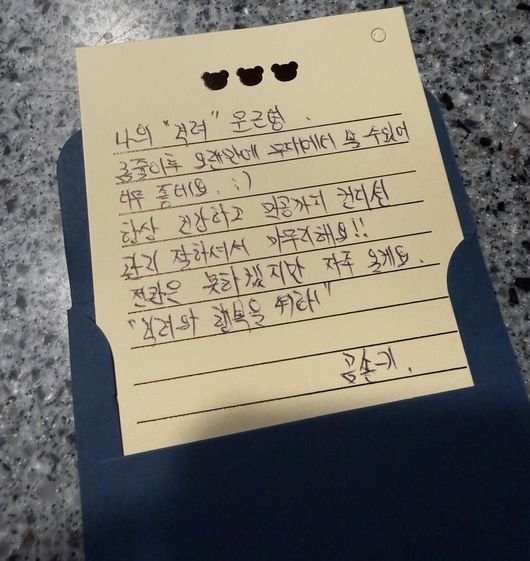 나의 "격려" 문근영.
곰줄이후 오랜만에 무대에서 볼 수있어
너무 좋네요. :)
항상 건강하고 막공까지 컨디션
관리 잘하셔서 마무리해요!!
전관은 못하겠지만 자주 올게요.
"격려와 행복을 위하!"
곰손기.